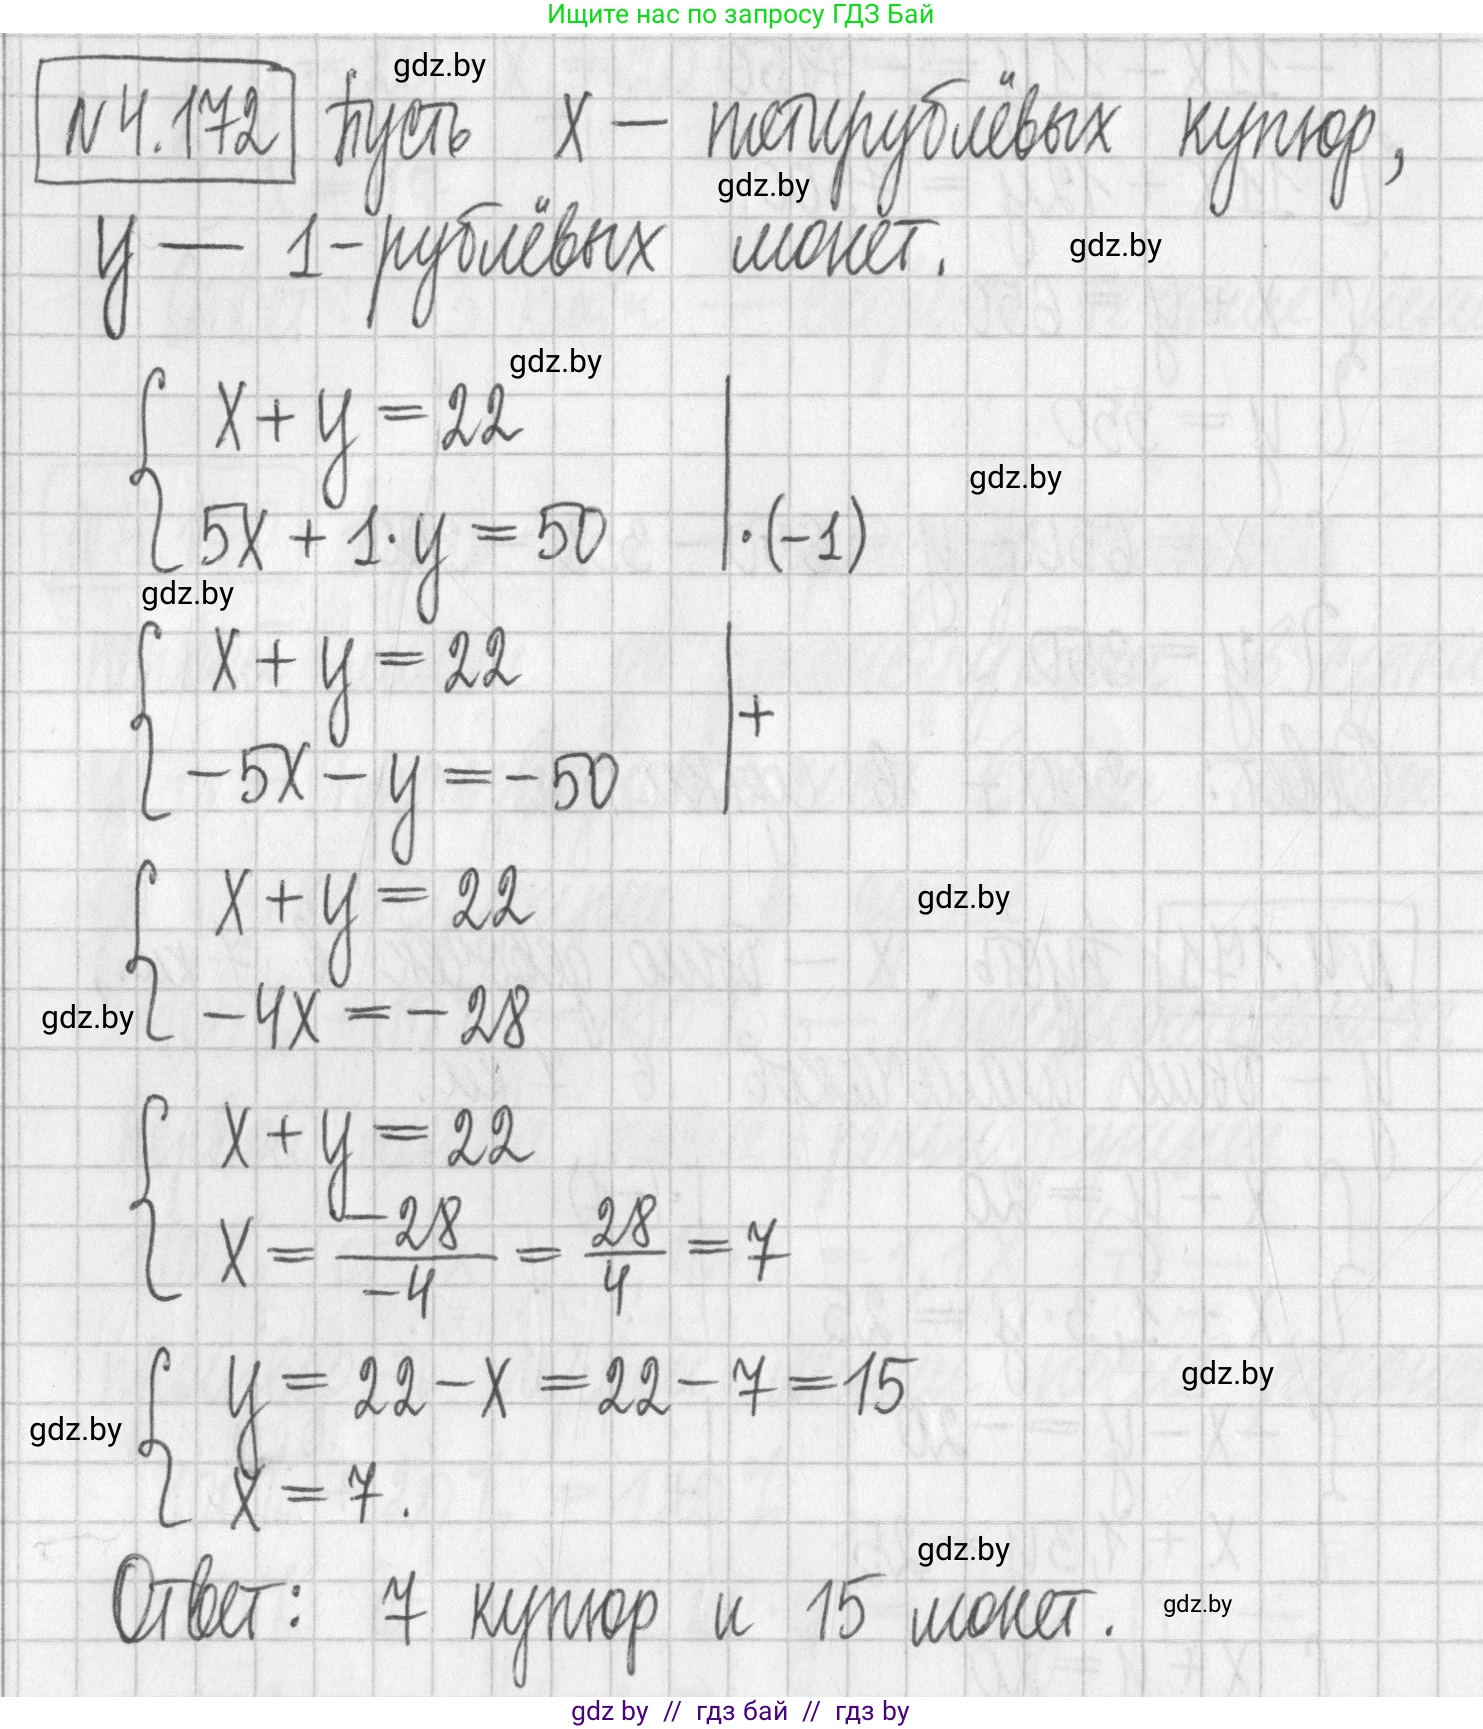 Ищите нас по запросу ГДЗ Бай
gdz.by
N 4.172 Пусть x — пятирублёвых купюр,
gdz.by
y — 1-рублёвых монет.
gdz.by
gdz.by
{ x + y = 22 |
gdz.by
5x + 1 · y = 50 | · (-1)
gdz.by
{ x + y = 22 | +
-5x - y = -50
{ x + y = 22
gdz.by
-4x = -28
gdz.by
{ x + y = 22
x = -28/-4 = 28/4 = 7
{ y = 22 - x = 22 - 7 = 15
gdz.by
gdz.by
x = 7.
gdz.by
Ответ: 7 купюр и 15 монет.
gdz.by
gdz by // гдз бай // гдз by